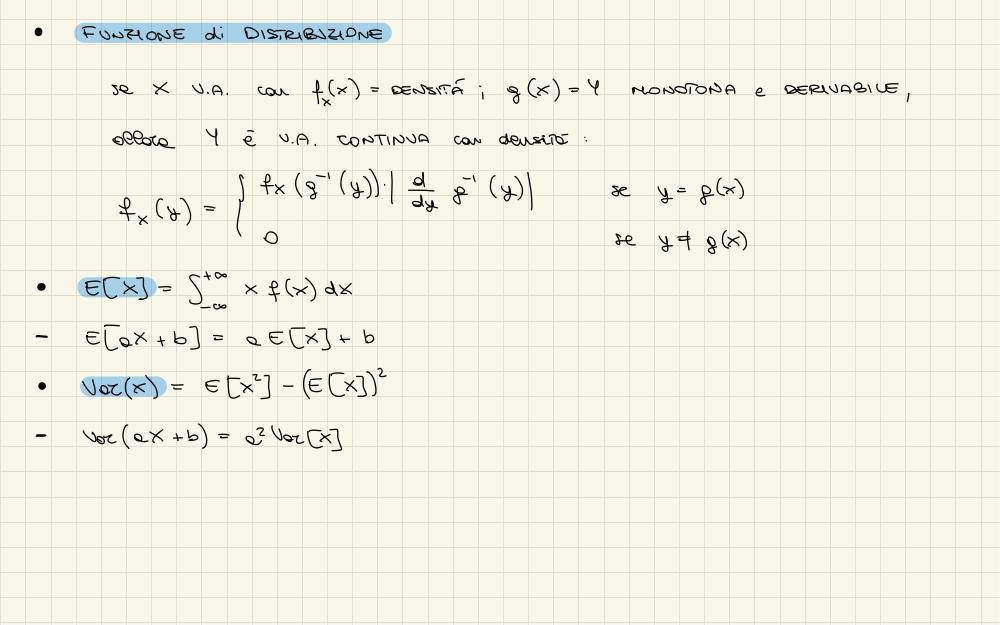 • FUNZIONE di DISTRIBUZIONE
se X V.A. con fₓ(x) = DENSITÀ ; g(x) = Y MONOTONA e DERIVABILE,
allora Y è V.A. CONTINUA con densità :
fₓ(y) = { fₓ(g⁻¹(y))·| d/dy g⁻¹(y)| se y = g(x)
0 se y ≠ g(x)
• E[X] = ∫₋∞⁺∞ x f(x) dx
- E[aX + b] = a E[X] + b
• Var(x) = E[X²] - (E[X])²
- Var(aX + b) = a² Var[X]